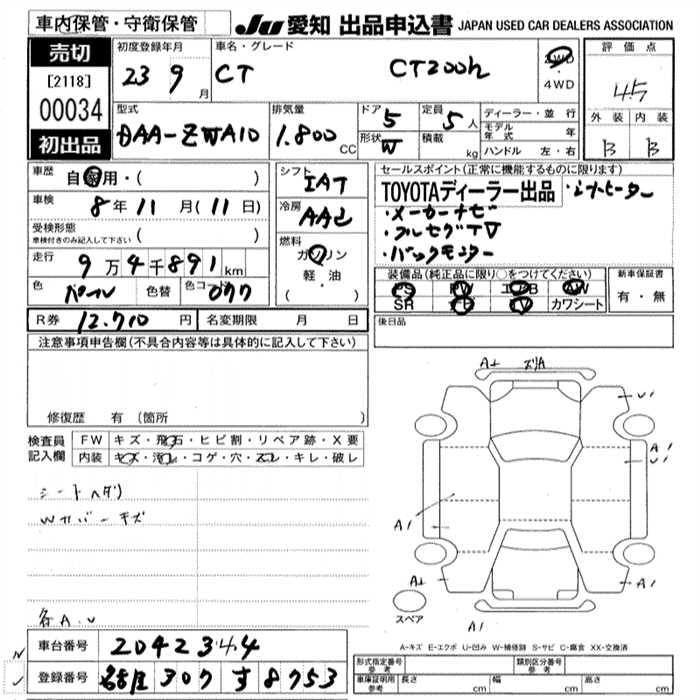 車内保管・守衛保管
JU 愛知 出品申込書 JAPAN USED CAR DEALERS ASSOCIATION
売切
[2118]
00034
初出品
初度登録年月 23 9 月
車名・グレード CT CT200h
2WD・4WD
評価点 4.5
外装 内装
B B
型式 DAA-ZWA10
排気量 1.800 CC
ドア 5
形状 W
定員 5 人
積載 kg
ディーラー・並行
モデル年式 年
ハンドル 左・右
車歴 自家用・( )
車検 8年 11月(11日)
受検形態
車検付きのみ記入して下さい ( )
走行 9万4千891km
色 パール 色替 色コード 077
シフト IAT
冷房 AAC
燃料 ガソリン
軽・油
( ・ )
セールスポイント(正常に機能するものに限ります)
TOYOTAディーラー出品 ・シートヒーター
・メーカーナビ
・フルセグTV
・バックモニター
装備品(純正品に限り○をつけてください)
PS PW エアB AW
SR ナビ TV カワシート
新車保証書
有・無
R券 12.710 円 名変期限 月 日
後日品
注意事項申告欄(不具合内容等は具体的に記入して下さい)
修復歴 有 (箇所 )
検査員記入欄
FW キズ・飛石・ヒビ割・リペア跡・X要
内装 キズ・汚れ・コゲ・穴・スレ・キレ・破レ
シートヘタリ
Wカバーキズ
各A.U
A1 ズリA
U1
A1
U1
A1
A1
A1
スペア
A1
A-キズ E-エクボ U-凹み W-補修跡 S-サビ C-腐食 XX-交換済
車台番号 2042344
登録番号 名古屋 307 す 8753
形式指定番号 参考
類別区分番号 参考
車庫証明用 参考 長さ cm 幅 cm 高さ cm